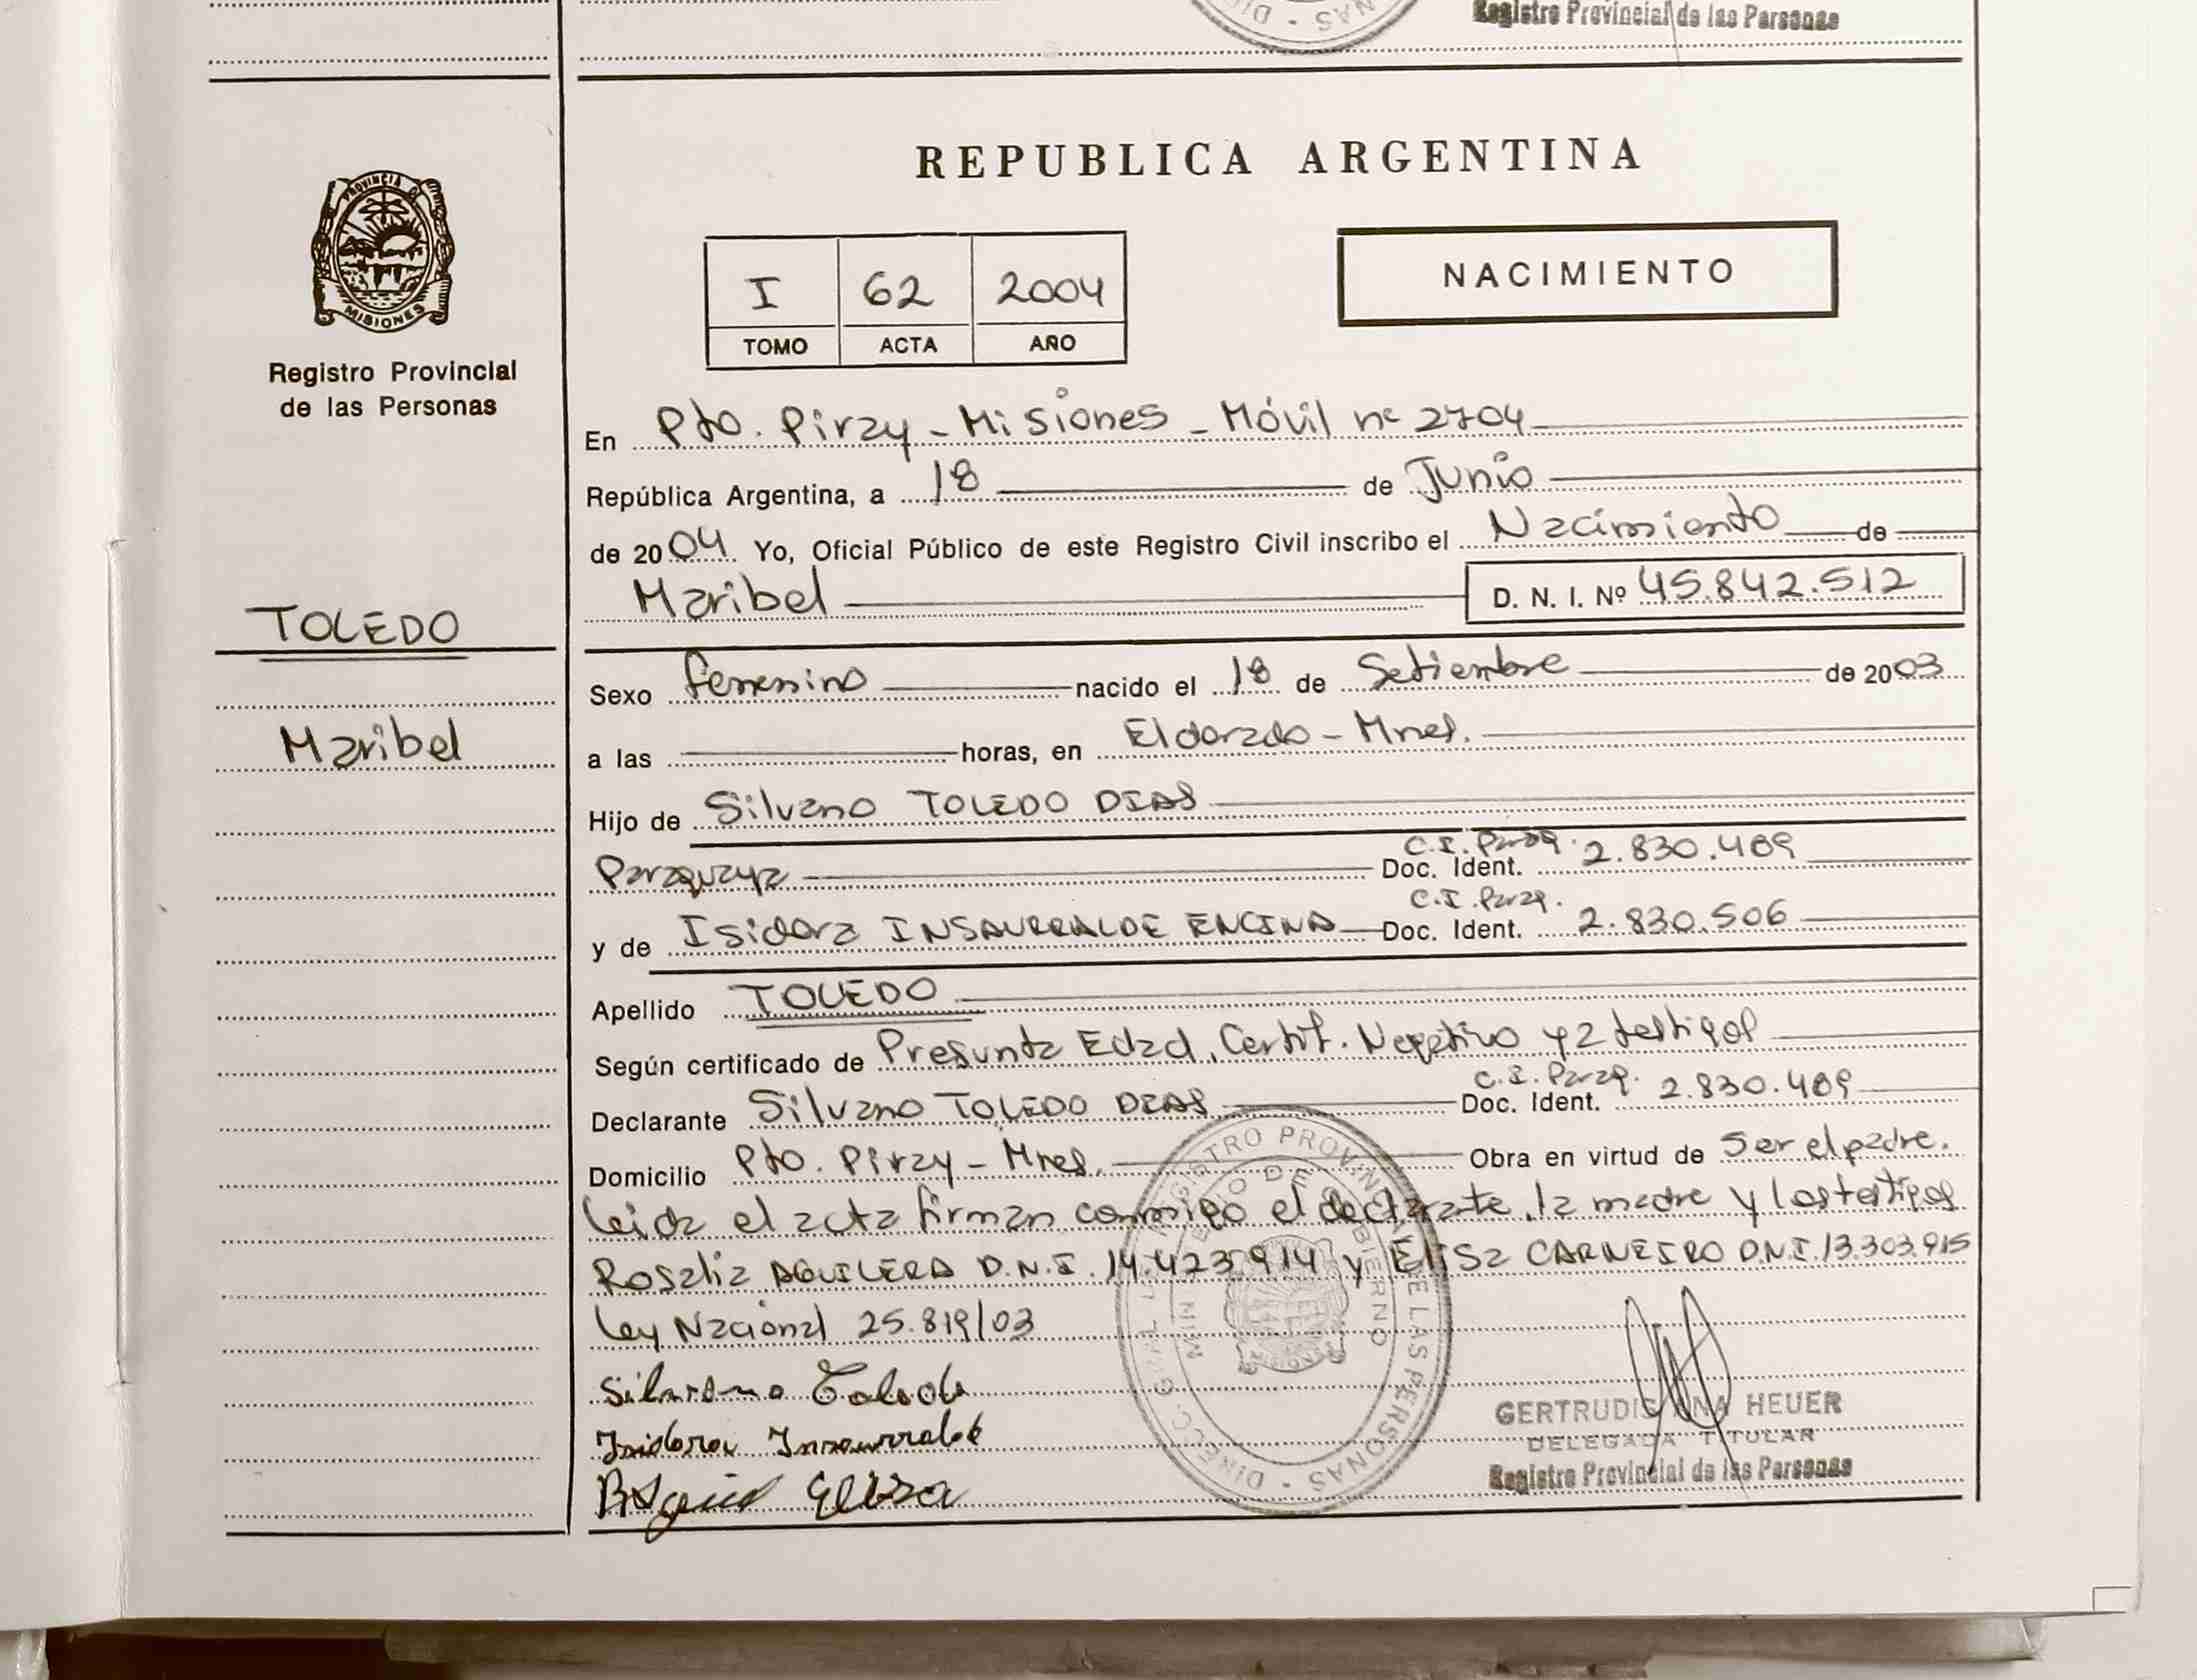 Registro Provincial de las Personas
REPUBLICA ARGENTINA
PROVINCIA D
MISIONES
Registro Provincial
de las Personas
I 62 2004
TOMO ACTA AÑO
NACIMIENTO
En Pto. Piray - Misiones - Móvil nº 2704
República Argentina, a 18 de Junio
de 2004 Yo, Oficial Público de este Registro Civil inscribo el Nacimiento de
Maribel D. N. I. Nº 45.842.512
TOLEDO
Maribel
Sexo femenino nacido el 18 de Setiembre de 2003
a las horas, en Eldorado - Mnes.
Hijo de Silvano TOLEDO DIAS
Paraguaya Doc. Ident. C.I. Parag. 2.830.489
y de Isidora INSAURRALDE ENCINA Doc. Ident. C.I. Parag. 2.830.506
Apellido TOLEDO
Según certificado de Presunta Edad, Certif. Negativo y 2 testigos
Declarante Silvano TOLEDO DIAS Doc. Ident. C.I. Parag. 2.830.489
Domicilio Pto. Piray - Mnes. Obra en virtud de ser el padre.
Leida el acta firman conmigo el declarante, la madre y los testigos
Rosalia AGUILERA D.N.I. 14.423.914 y Elisa CARNEIRO D.N.I. 13.303.915
Ley Nacional 25.819/03
Silvano Toledo
Isidora Insaurralde
Elisa
GERTRUDIS ANA HEUER
DELEGADA TITULAR
Registro Provincial de las Personas
DIRECC. GRAL. REGISTRO PROVINCIAL DE LAS PERSONAS